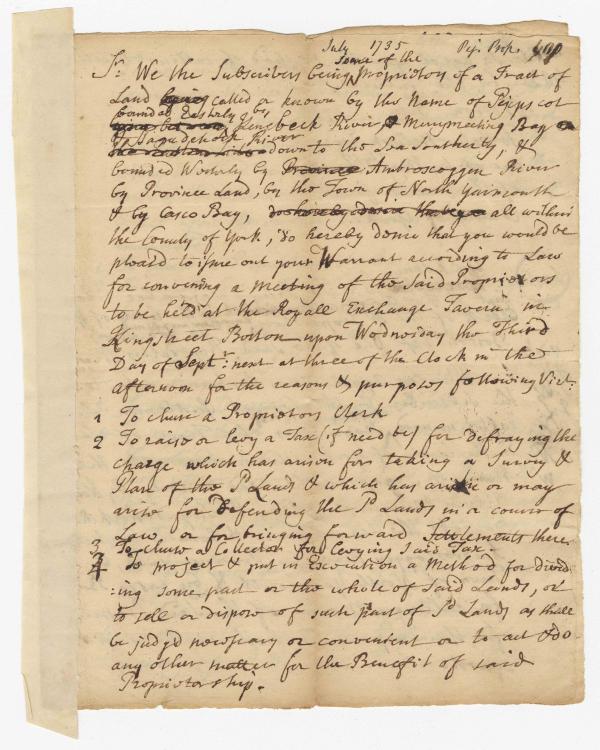 July 1735 Pej. Prop.
some of the
Sr. We the Subscribers being Proprietors of a Tract of
Land being called or known by the Name of Pejepscot
bounded Easterly by
Kenebeck River & Merrymeeting Bay
& Sagadehock River
down to the Sea Southerly, &
bounded Westerly by Province Ambroscoggen River
by Province Land, by the Town of North Yarmouth
& by Casco Bay, all within
the County of York, do hereby desire that you would be
pleas'd to issue out your Warrant according to Law
for convening a Meeting of the said Proprietors
to be held at the Royall Exchange Tavern in
Kingstreet Boston upon Wednesday the Third
Day of Septr. next at three of the Clock in the
afternoon for the reasons & purposes following Vizt:
1 To chuse a Proprietors Clerk
2 To raise or levy a Tax (if need be) for defraying the
charge which has arisen for taking a Survey &
Plan of the sd Lands & which has or may
arise for defending the sd Lands in a course of
Law or for bringing forward Settlements there
3 To chuse a Collector for Levying said Tax.
4 To project & put in Execution a Method for divid
:ing some part or the whole of said Lands, or
to sell or dispose of such part of sd Lands as shall
be judg'd necessary or convenient or to act & do
any other matter for the Benefit of said
Proprietorship.